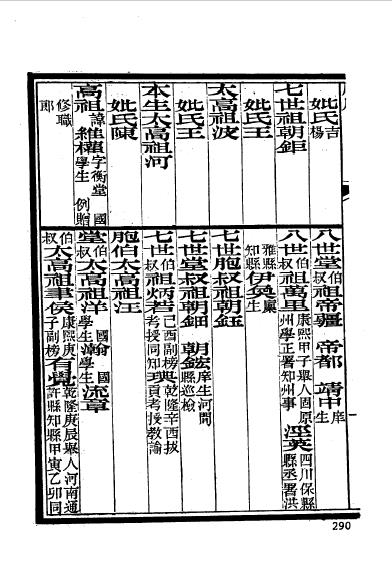 妣氏吉楊
七世祖朝鉅
妣氏王
太高祖波
妣氏王
本生太高祖河
妣氏陳
高祖諱維權字衡堂 國學生 例贈
修職郎
八世堂伯叔祖帝疆 帝都 靖中庠生
八世伯叔祖萬里康熙甲子舉人固原州學正署知州事 涇英四川保縣縣丞署洪
雅縣知縣 伊奐廩生
七世胞叔祖朝鈺
七世堂叔祖朝鈿 朝鉉庠生河間縣巡檢
七世伯叔祖炳若己酉副榜考授同知 琠乾隆辛酉拔貢考授教諭
胞伯太高祖汪
堂伯叔太高祖洋國學生 瀚國學生 流章
伯叔太高祖事侯康熙庚子副榜 有覺乾隆庚辰舉人河南通許縣知縣甲寅乙卯同
290